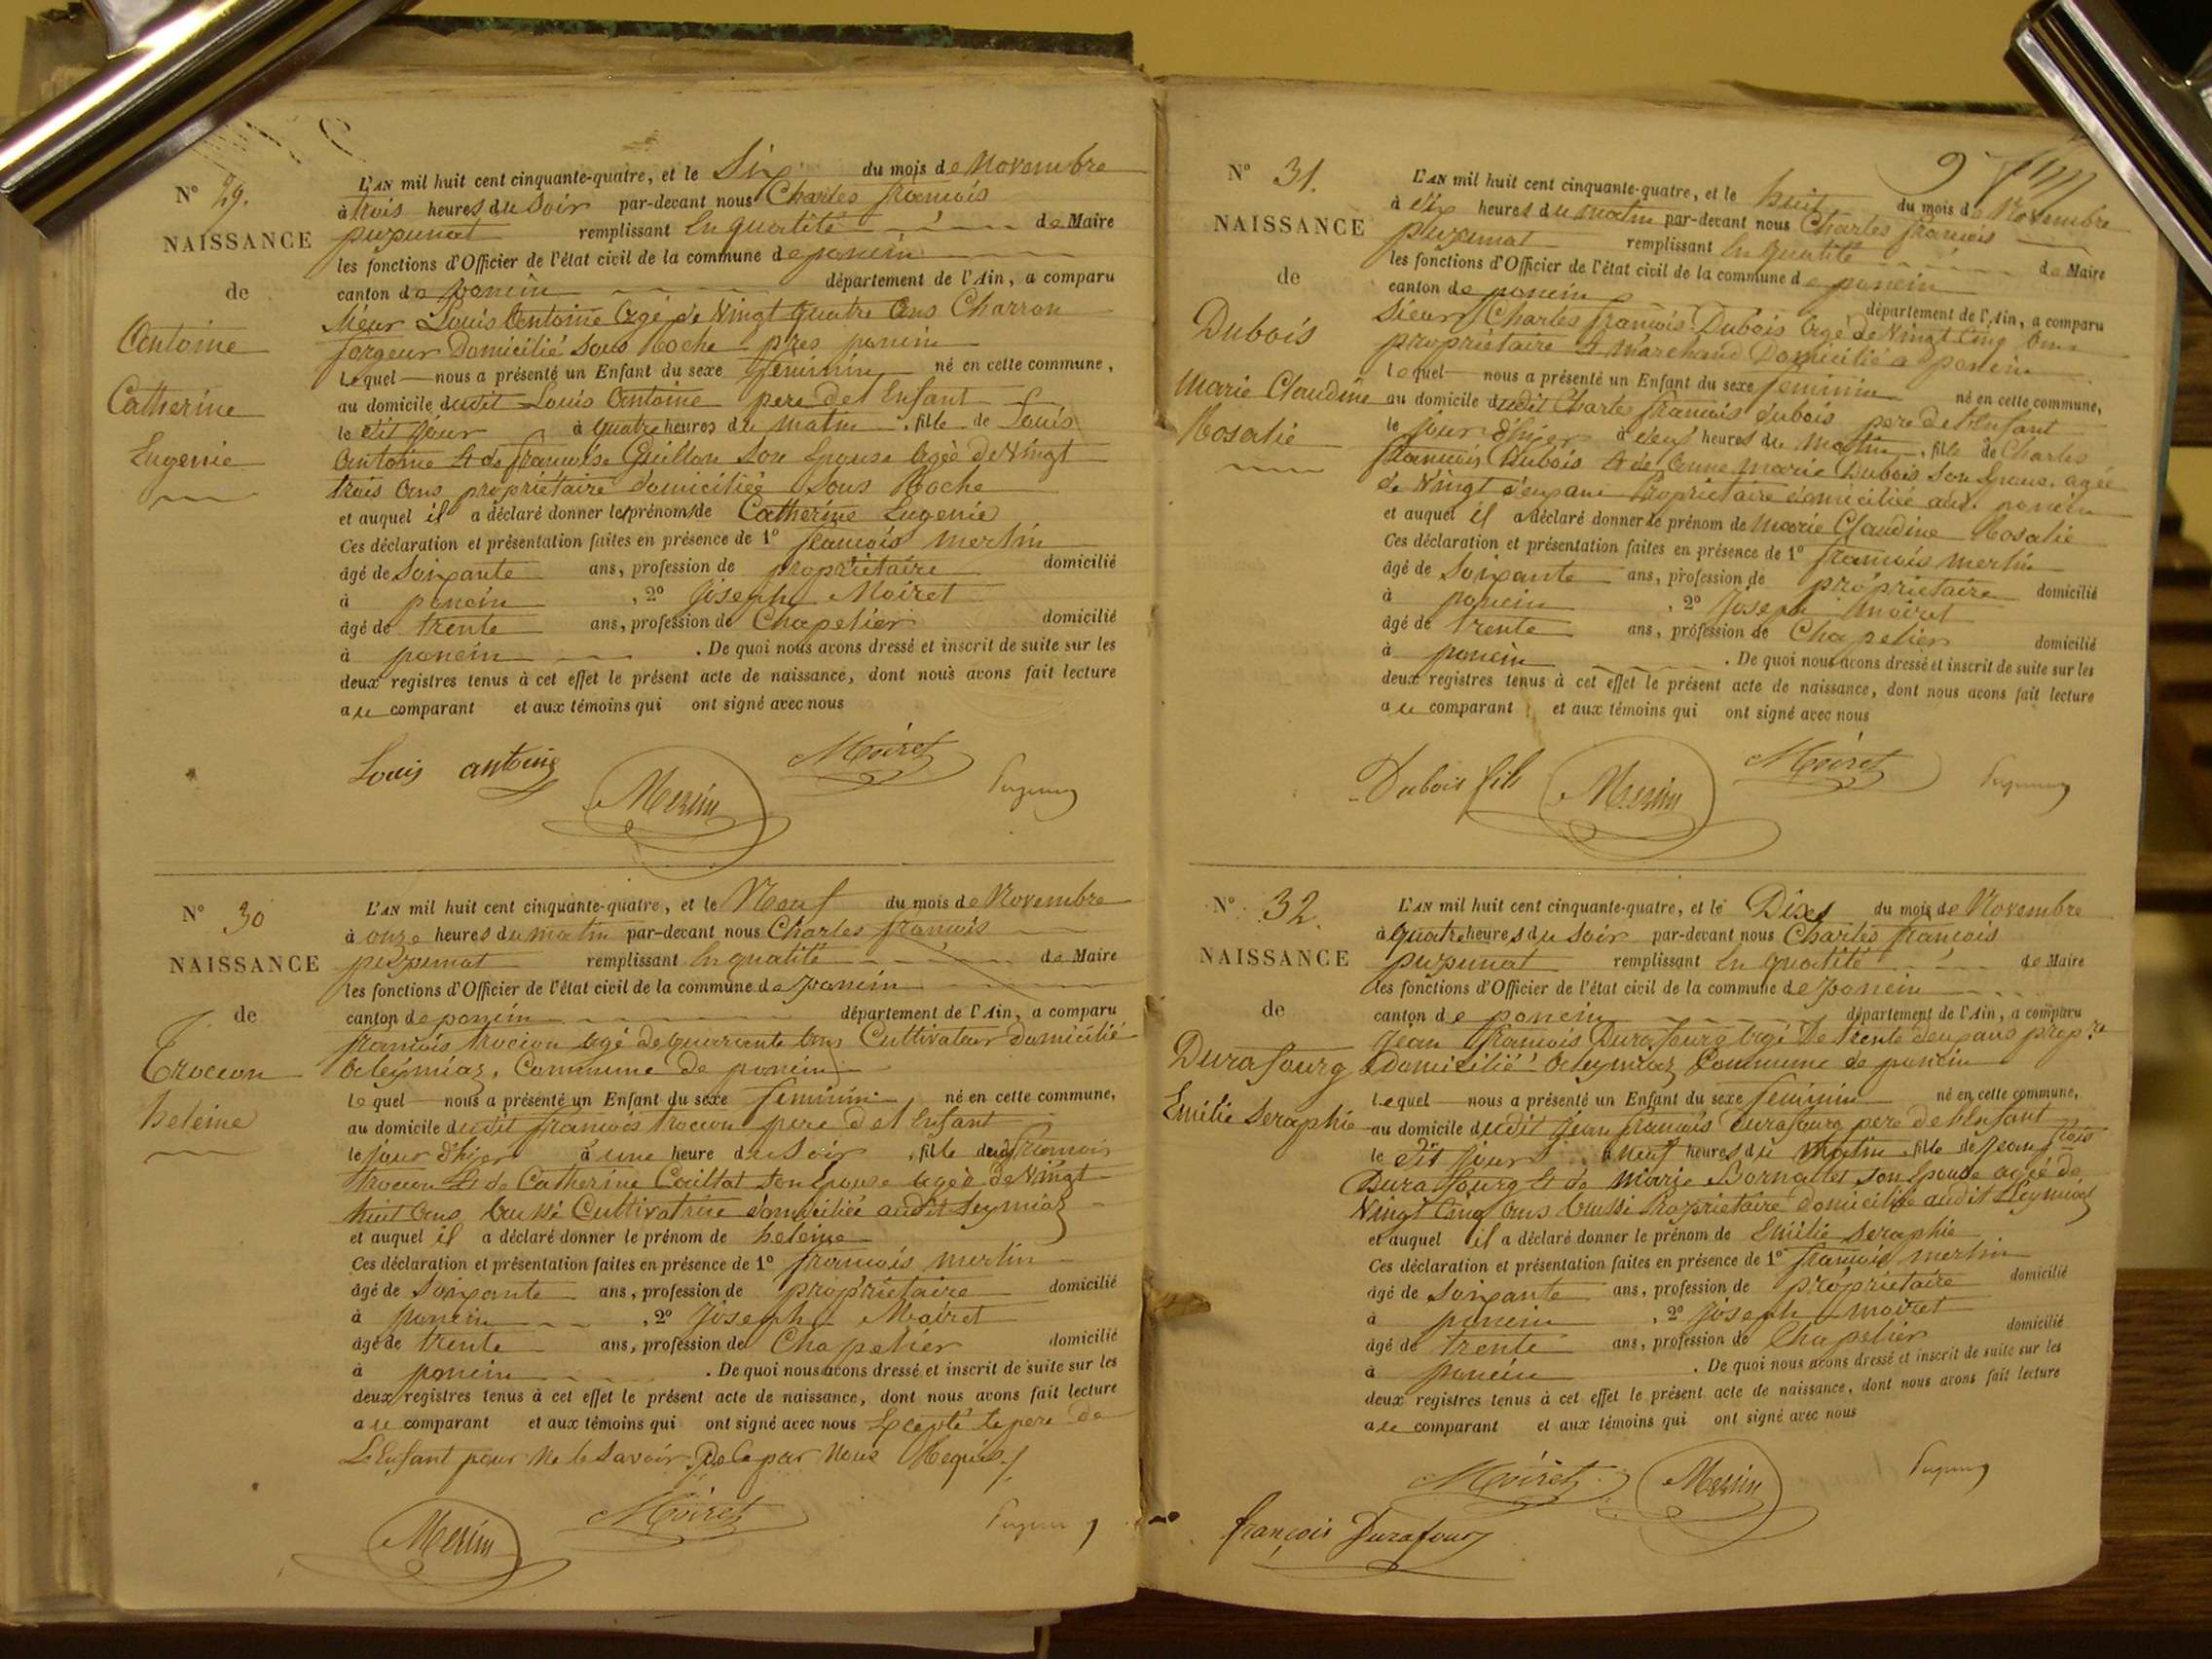 N° 29.
NAISSANCE
de
Antoine
Catherine
Eugenie
L'AN mil huit cent cinquante-quatre, et le Six du mois de Novembre
à trois heures du Soir par-devant nous Charles francois
puzunat remplissant En qualité de Maire
les fonctions d'Officier de l'état civil de la commune de poncin
canton de poncin département de l'Ain, a comparu
Sieur Louis Antoine agé de Vingt quatre ans Charron
forgeur Domicilié Sous Roche pres poncin
lequel nous a présenté un Enfant du sexe feminin né en cette commune,
au domicile dudit Louis Antoine pere del Enfant
le dit jour à quatre heures du matin, fille de Louis
Antoine & de francoise Guillon Son Epouse agée de Vingt
trois ans propriétaire domiciliée Sous Roche
et auquel il a déclaré donner les prénoms de Catherine Eugenie
Ces déclaration et présentation faites en présence de 1° francois merlin
âgé de Soixante ans, profession de propriétaire domicilié
à poncin, 2° Joseph Moiret
âgé de trente ans, profession de Chapelier domicilié
à poncin. De quoi nous avons dressé et inscrit de suite sur les
deux registres tenus à cet effet le présent acte de naissance, dont nous avons fait lecture
au comparant et aux témoins qui ont signé avec nous
Louis antoine Merlin Moiret
N° 30
NAISSANCE
de
Troccon
heleine
L'AN mil huit cent cinquante-quatre, et le Neuf du mois de Novembre
à onze heures du matin par-devant nous Charles francois
puzunat remplissant En qualité de Maire
les fonctions d'Officier de l'état civil de la commune de poncin
canton de poncin département de l'Ain, a comparu
francois trocon agé de quarante ans Cultivateur domicilié
a leymiaz, Commune de poncin
lequel nous a présenté un Enfant du sexe feminin né en cette commune,
au domicile dudit francois trocon pere del Enfant
le jour d'hier à une heure du Soir, fille dud francois
trocon & de Catherine Caillat Son Epouse agée de Vingt
huit ans aussi Cultivatrice domiciliée audit Leymiaz
et auquel il a déclaré donner le prénom de heleine
Ces déclaration et présentation faites en présence de 1° francois merlin
âgé de Soixante ans, profession de propriétaire domicilié
à poncin, 2° Joseph Moiret
âgé de trente ans, profession de Chapelier domicilié
à poncin. De quoi nous avons dressé et inscrit de suite sur les
deux registres tenus à cet effet le présent acte de naissance, dont nous avons fait lecture
au comparant et aux témoins qui ont signé avec nous Excepté le pere de
L'Enfant pour ne le Savoir de ce par Nous Requis
Merlin Moiret
N° 31.
NAISSANCE
de
Dubois
Marie Claudine
Rosalie
L'AN mil huit cent cinquante-quatre, et le huit du mois de Novembre
à dix heures du matin par-devant nous Charles francois
puzunat remplissant En qualité de Maire
les fonctions d'Officier de l'état civil de la commune de poncin
canton de poncin département de l'Ain, a comparu
Sieur Charles francois Dubois agé de Vingt Cinq ans
propriétaire & Marchand Domicilié a poncin
lequel nous a présenté un Enfant du sexe feminin né en cette commune,
au domicile dudit Charles francois dubois pere de l'Enfant
le jour d'hier à deux heures du Matin, fille de Charles
francois Dubois & de anne marie Dubois Son Epouse agée
de Vingt deux ans Propriétaire domiciliée aud. poncin
et auquel il a déclaré donner le prénom de Marie Claudine Rosalie
Ces déclaration et présentation faites en présence de 1° francois merlin
âgé de Soixante ans, profession de propriétaire domicilié
à poncin, 2° Joseph Moiret
âgé de trente ans, profession de Chapelier domicilié
à poncin. De quoi nous avons dressé et inscrit de suite sur les
deux registres tenus à cet effet le présent acte de naissance, dont nous avons fait lecture
au comparant et aux témoins qui ont signé avec nous
Dubois fils Merlin Moiret
N° 32.
NAISSANCE
de
Durafourg
Emilie Seraphie
L'AN mil huit cent cinquante-quatre, et le Dix du mois de Novembre
à quatre heures du Soir par-devant nous Charles francois
puzunat remplissant En qualité de Maire
les fonctions d'Officier de l'état civil de la commune de poncin
canton de poncin département de l'Ain, a comparu
Jean francois Durafourg agé De trente deux ans prop.re
Domicilié a leymiaz Commune de poncin
lequel nous a présenté un Enfant du sexe feminin né en cette commune,
au domicile dudit Jean francois Durafourg pere de l'Enfant
le dit jour à Neuf heures du Matin, fille de Jean fcois
Durafourg & de Marie Bornallet son Epouse agée de
Vingt Cinq ans aussi Propriétaire domiciliée audit Leymiaz
et auquel il a déclaré donner le prénom de Emilie Seraphie
Ces déclaration et présentation faites en présence de 1° francois merlin
âgé de Soixante ans, profession de propriétaire domicilié
à poncin, 2° Joseph Moiret
âgé de trente ans, profession de Chapelier domicilié
à poncin. De quoi nous avons dressé et inscrit de suite sur les
deux registres tenus à cet effet le présent acte de naissance, dont nous avons fait lecture
au comparant et aux témoins qui ont signé avec nous
Moiret Merlin
françois Durafour